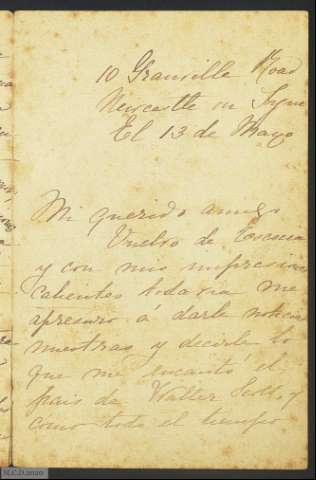 10 Granville Road
Newcastle on Tyne
El 13 de Mayo
Mi querido amigo
Vuelvo de Escocia
y con mis impresiones
calientes todavia me
apresuro á darle noticias
nuestras y decirle lo
que me encantó el
pais de Walter Scott, y
como todo el tiempo
M.C.D. 2020